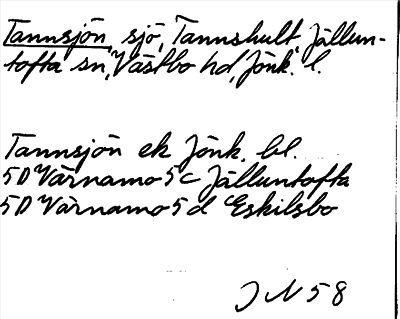 Tannsjön sjö, Tannshult Jällun-
tofta sn, Västbo hd, Jönk. l.
Tannsjön ek Jönk. bl.
5D Värnamo 5c Jälluntofta
5D Värnamo 5d Eskilsbo
J N 58